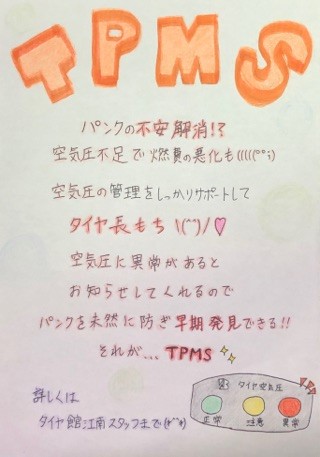 TPMS
パンクの不安解消!?
空気圧不足で燃費の悪化も((((°°;)
空気圧の管理をしっかりサポートして
タイヤ長もち \(^^)/♡
空気圧に異常があると
お知らせしてくれるので
パンクを未然に防ぎ早期発見できる!!
それが... TPMS
タイヤ空気圧
正常 注意 異常
詳しくは
タイヤ館江南スタッフまで(#^^#)